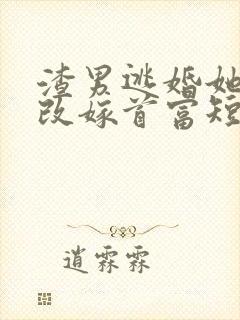 渣男逃婚她
改嫁首富短
逍霖霖